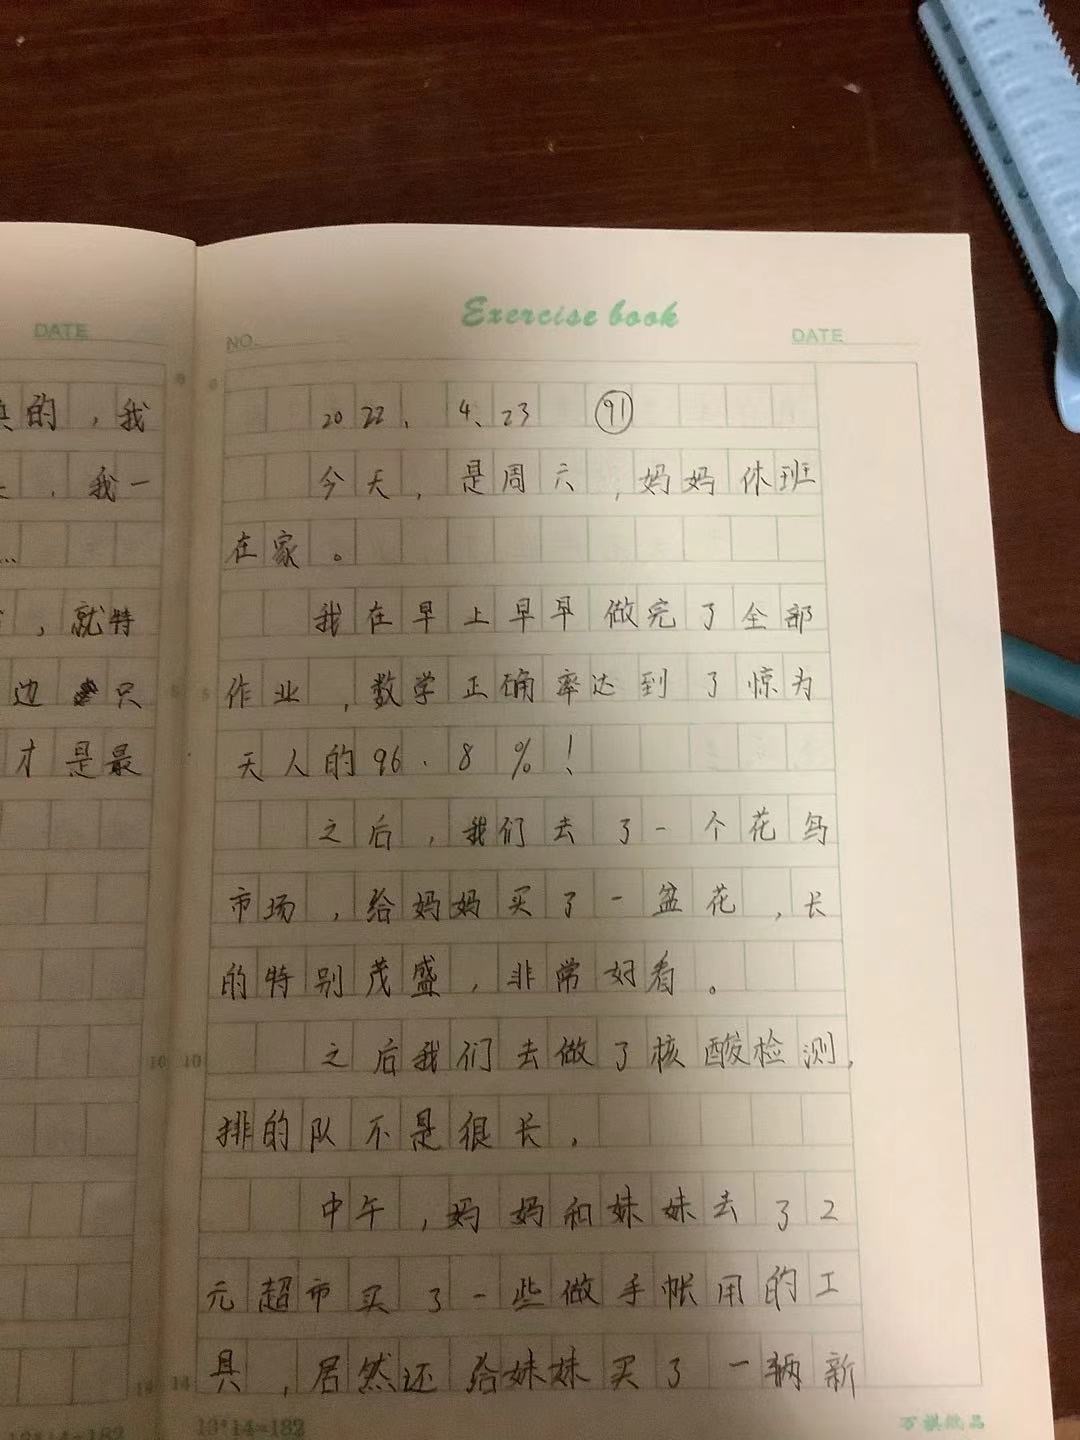 DATE
的，我
，我一
…
，就特
边 只
才是最
Exercise book
NO.
DATE
2022、4、23 91
今天，是周六，妈妈休班
在家。
我在早上早早做完了全部
作业，数学正确率达到了惊为
天人的96.8%！
之后，我们去了一个花鸟
市场，给妈妈买了一盆花，长
的特别茂盛，非常好看。
之后我们去做了核酸检测，
排的队不是很长，
中午，妈妈和妹妹去了2
元超市买了一些做手帐用的工
具，居然还给妹妹买了一辆新
5 5
10 10
14 14
13*14=182
13*14=182
万棋纸品